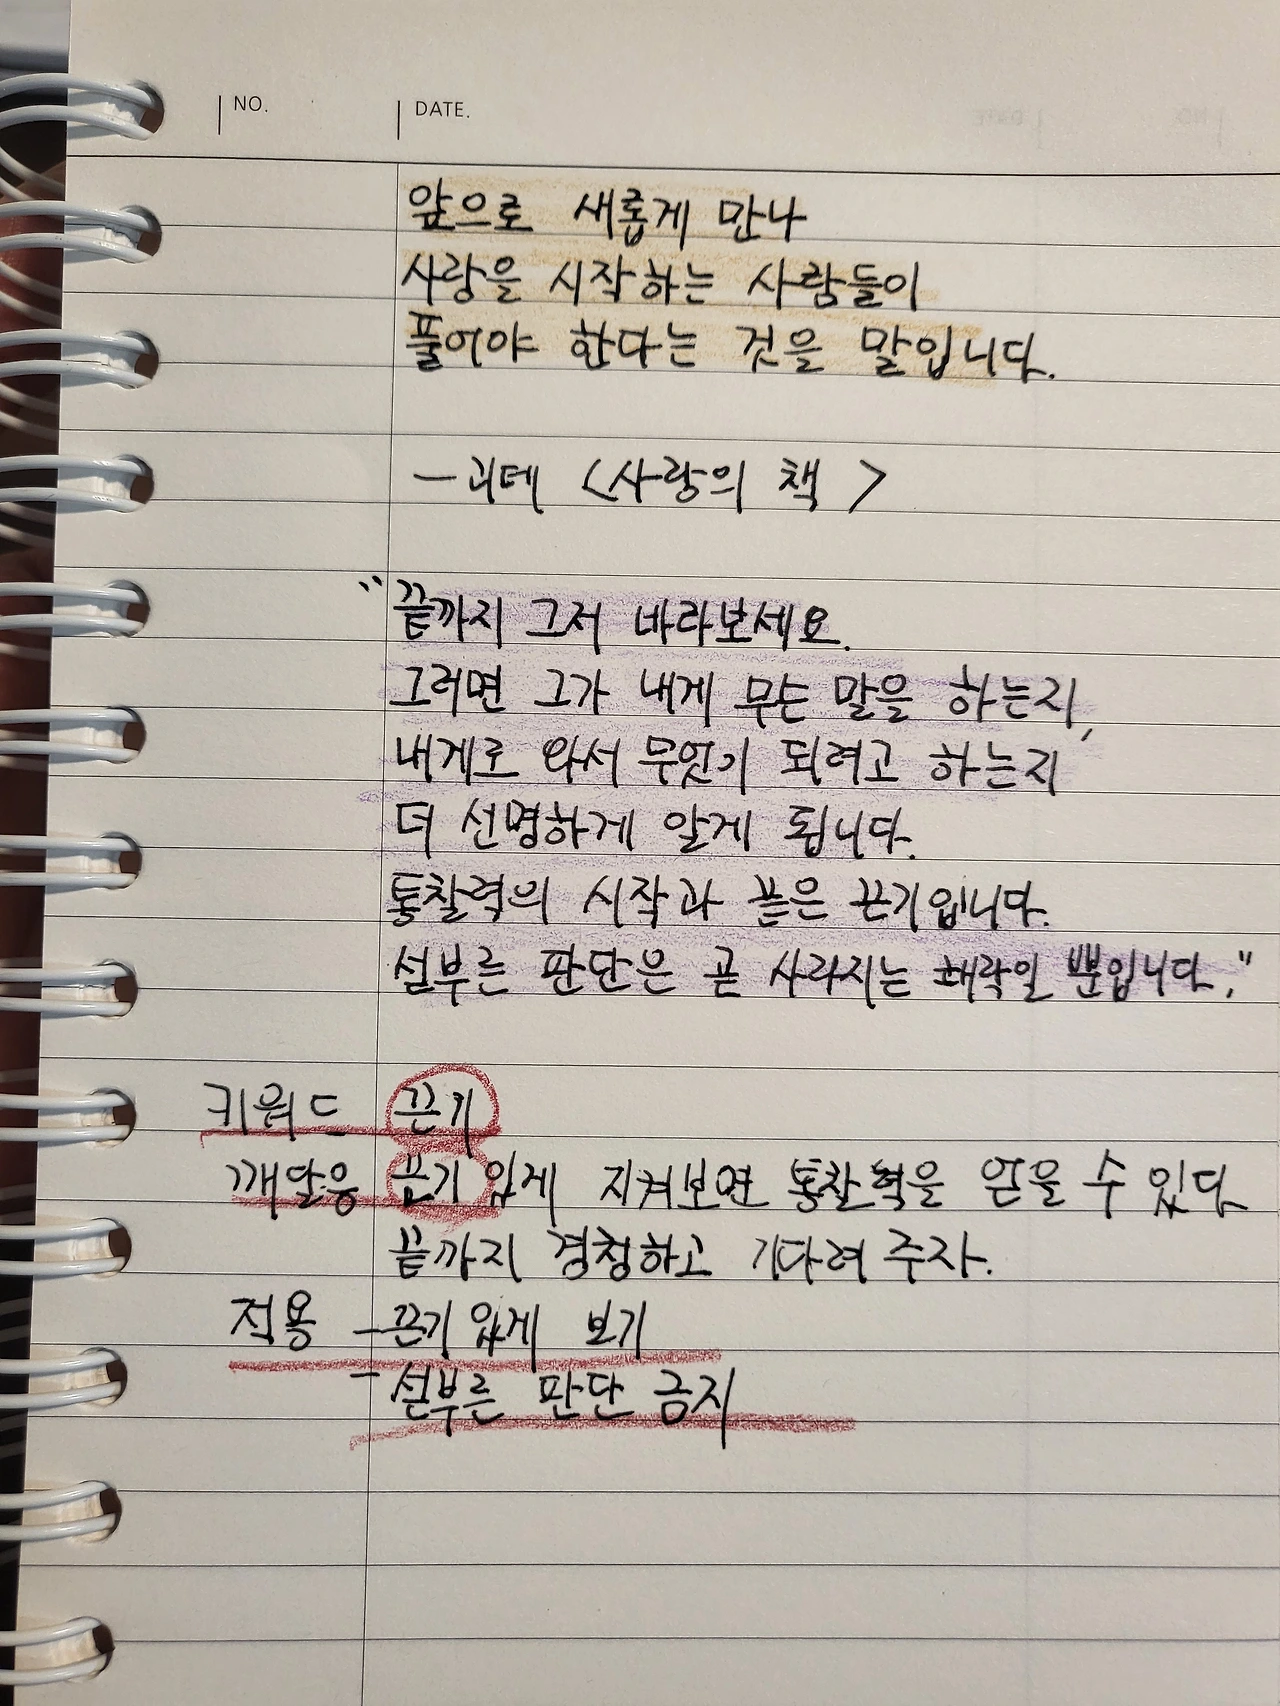 NO.
DATE.
앞으로 새롭게 만나
사랑을 시작하는 사람들이
풀어야 한다는 것을 말입니다.
- 괴테 <사랑의 책>
"끝까지 그저 바라보세요.
그러면 그가 내게 무슨 말을 하는지,
내게로 와서 무엇이 되려고 하는지
더 선명하게 알게 됩니다.
통찰력의 시작과 끝은 끈기입니다.
섣부른 판단은 곧 사라지는 쾌락일 뿐입니다."
키워드 끈기
깨달음 끈기 있게 지켜보면 통찰력을 얻을 수 있다
끝까지 경청하고 기다려 주자.
적용 - 끈기 있게 보기
- 섣부른 판단 금지